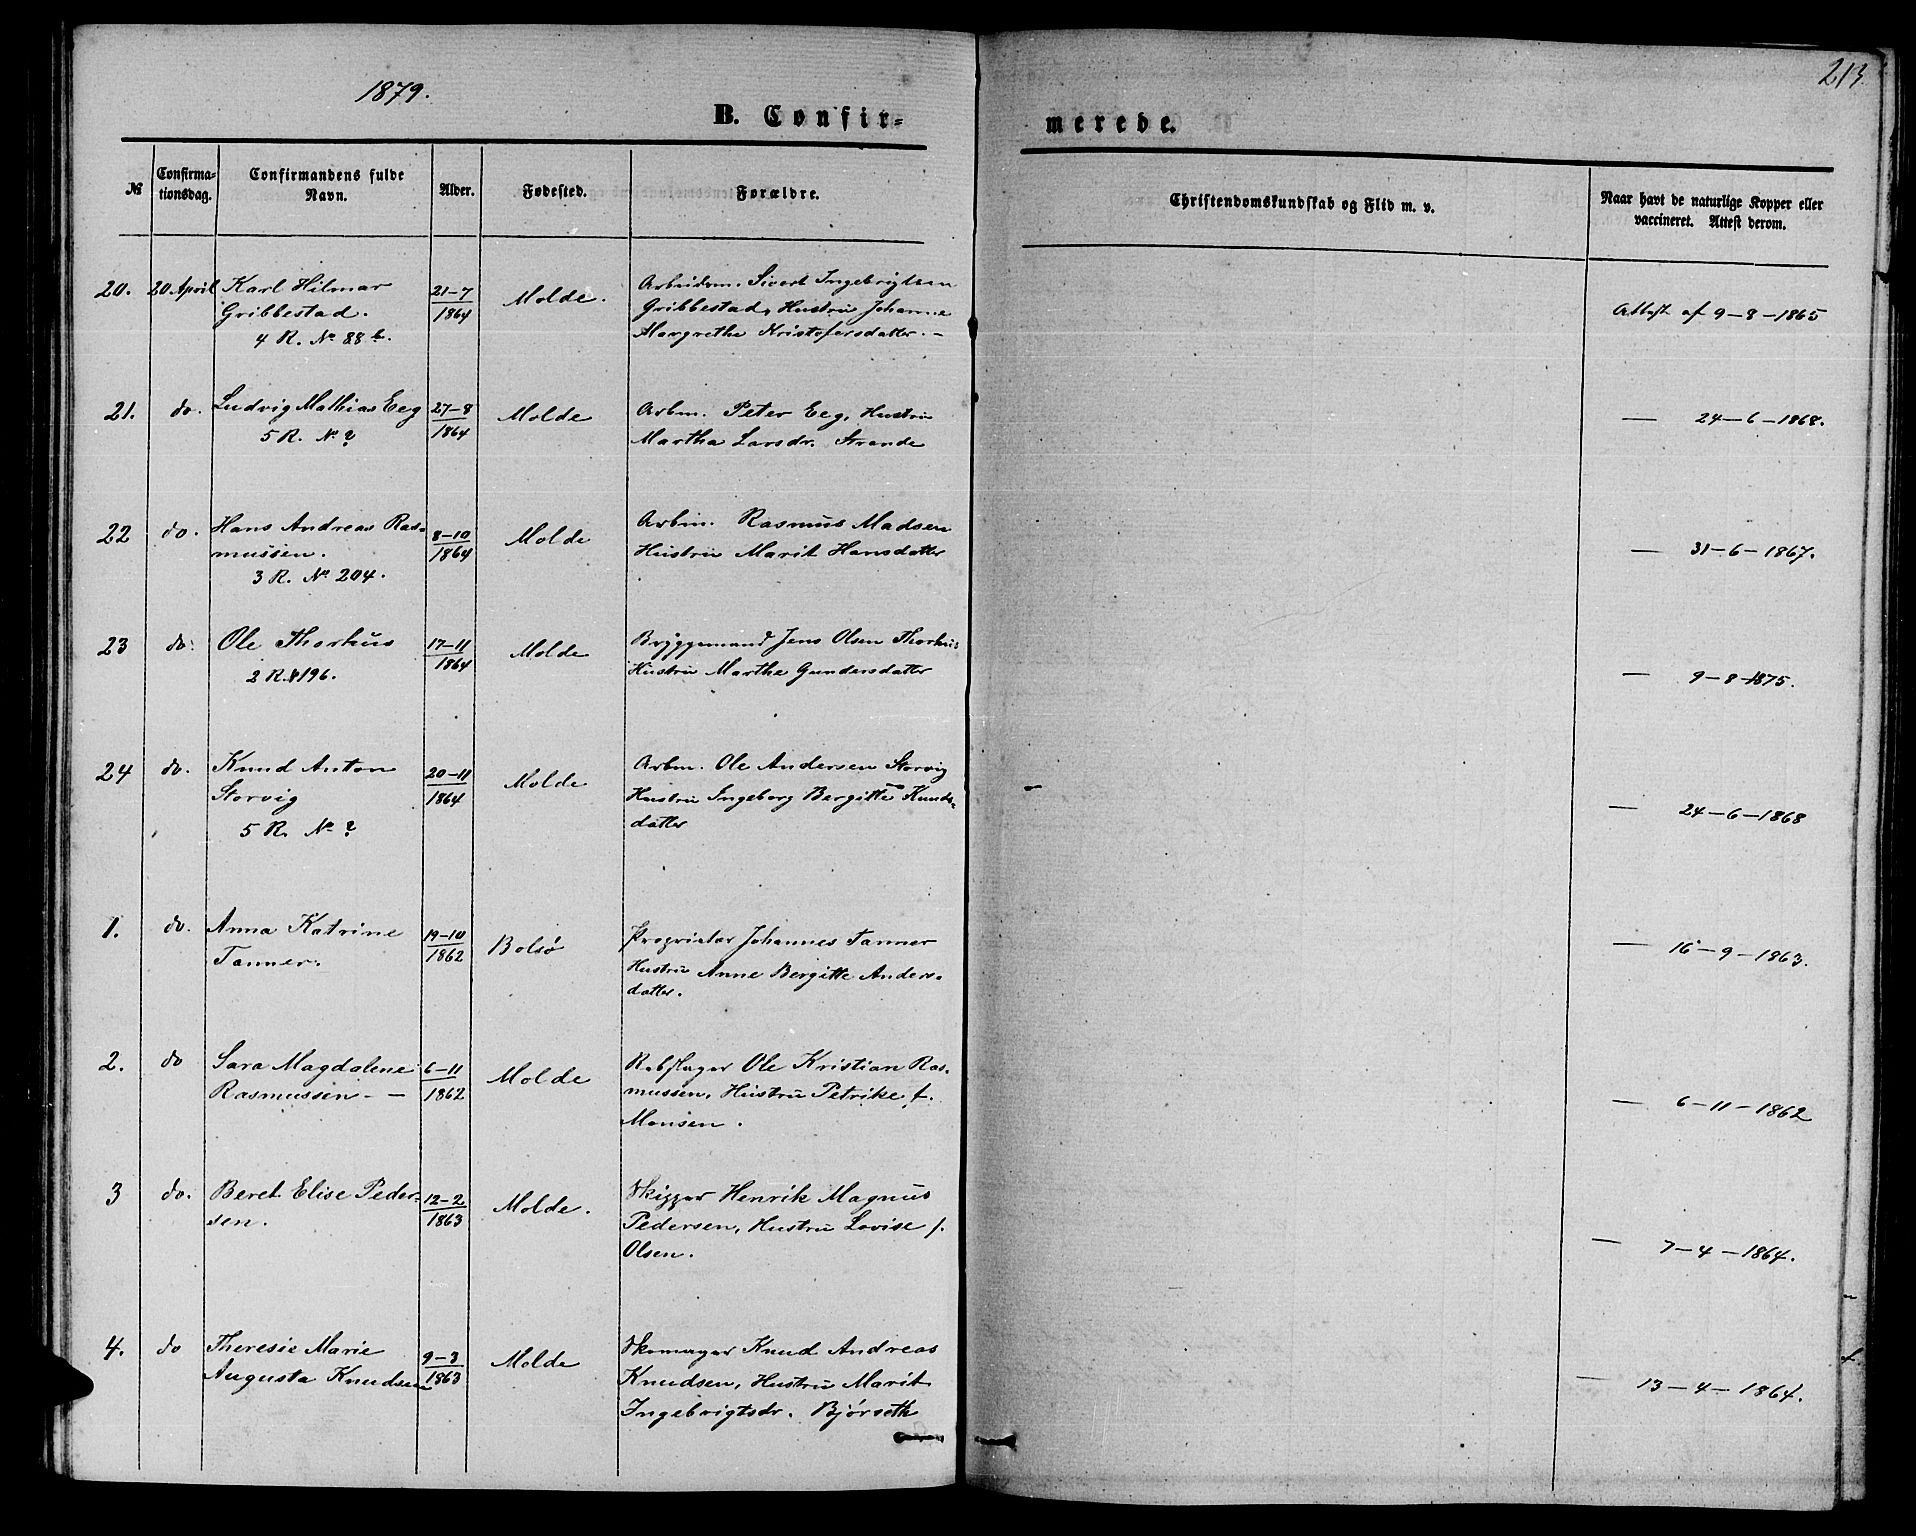 1879.
213
B. Confir-
merede.
№
Confirma-
tionsdag.
Confirmandens fulde
Navn.
Alder.
Fødested.
Forældre.
Christendomskundskab og Flid m. v.
Naar havt de naturlige Kopper eller
vaccineret. Attest derom.
20. 20 April Karl Hilmar 21-7 Molde. Arbeidsm. Sivert Ingebrigtsen
Gribbestad. 1864 Gribbestad, Hustru Johanne Attest af 9-8-1865
4 R. No 88 b. Margrethe Kristofersdatter. -
21. do. Ludvig Mathias Eeg 27-8 Molde Arbm. Peter Eeg, Hustru — 24-6-1868.
5 R. No ? 1864 Martha Larsdr. Strande
22 do. Hans Andreas Ras- 8-10 Molde Arbm. Rasmus Madsen
mussen. 1864 Hustru Marit Hansdatter — 31-6-1867.
3 R. No 204.
23 do. Ole Thorhus 17-11 Molde Bryggemand Jens Olsen Thorhus
2 R. # 196. 1864 Hustru Marthe Gundersdatter — 9-8-1875.
24 do. Knud Anton 20-11 Molde Arbm. Ole Andersen Storvig
Storvig 1864 Hustru Ingeborg Bergitte Knuds- — 24-6-1868
5 R. No ? datter
1. do. Anna Katrine 19-10 Bolsø Proprietær Johannes Tanner
Tanner. 1862 Hustru Anne Bergitte Anders- — 16-9-1863.
datter.
2. do Sara Magdalene 6-11 Molde Rebslager Ole Kristian Ras-
Rasmussen - — 1862 mussen, Hustru Petrike f. — 6-11-1862
Monsen.
3 do. Beret Elise Peder- 12-2 Molde. Skipper Henrik Magnus
sen. 1863 Pedersen, Hustru Lovise f.
Olsen. — 7-4-1864.
4. do Theresie Marie 9-3 Molde Skomager Knud Andreas
Augusta Knudsen 1863 Knudsen, Hustru Marit — 13-4-1864.
Ingebrigtsdr. Bjørseth